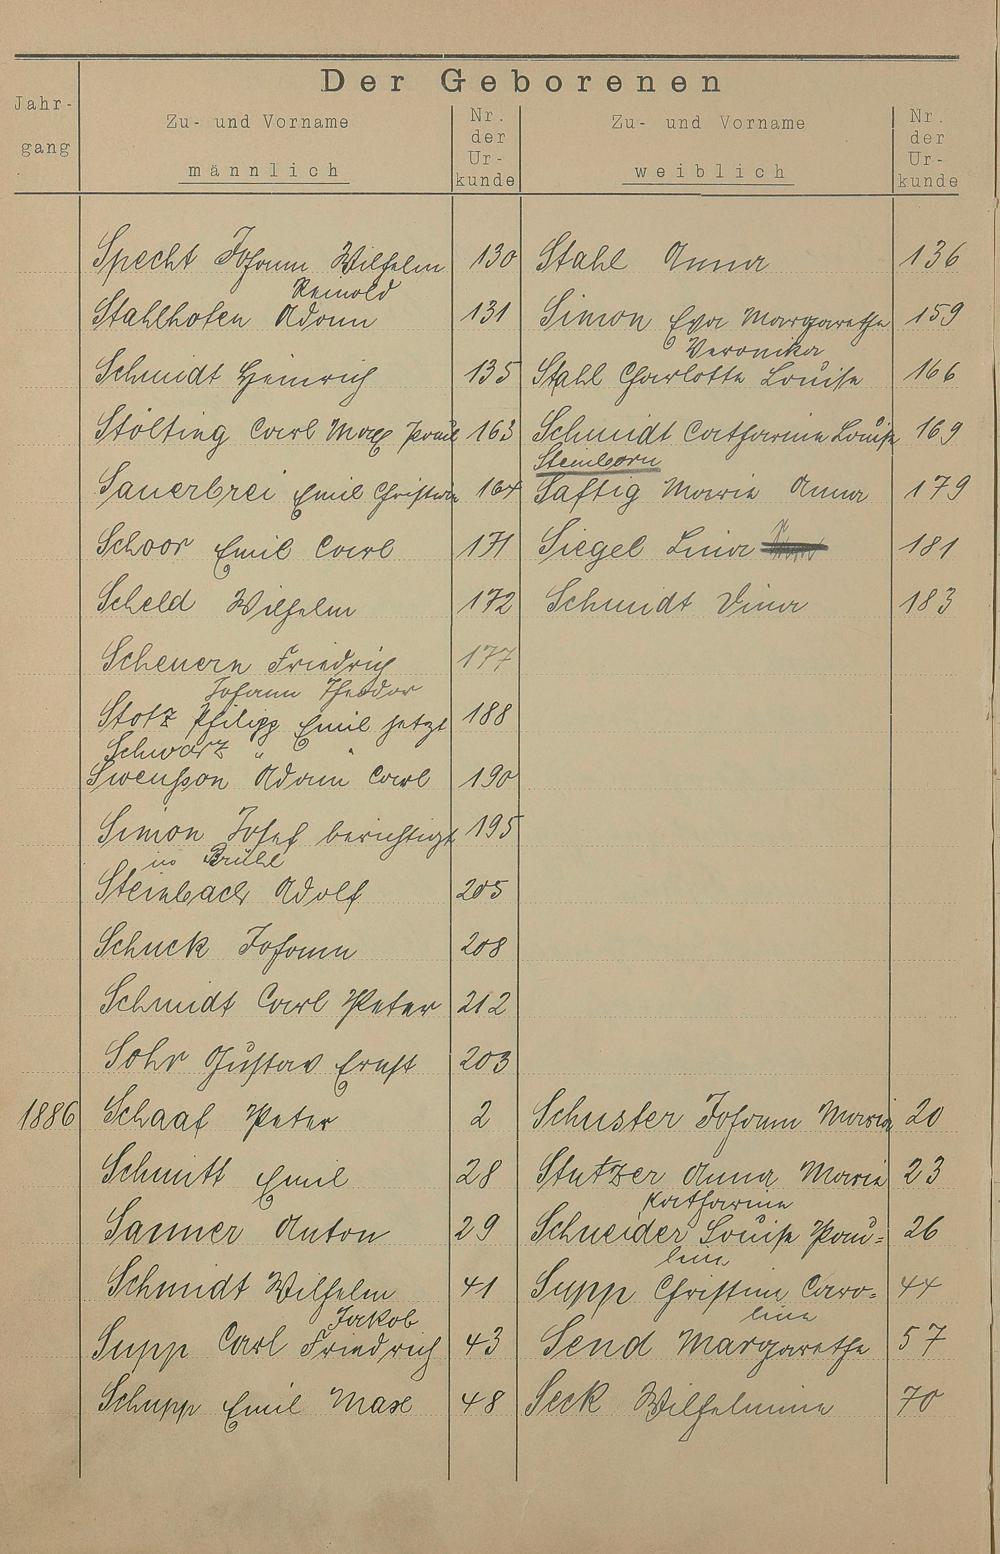 Der Geborenen
Jahr-
gang
Zu- und Vorname
männlich
Nr.
der
Ur-
kunde
Zu- und Vorname
weiblich
Nr.
der
Ur-
kunde
Specht Johann Wilhelm 130 Stahl Anna 136
Reinold
Stahlhofen Adam 131 Simon Eva Margarethe 159
Veronika
Schmidt Heinrich 135 Stahl Charlotte Louise 166
Stölting Carl Max Paul 163 Schmidt Catharine Louise 169
Steinborn
Sauerbrei Emil Christian 164 Saftig Marie Anna 179
Schoor Emil Carl 171 Siegel Lina 181
Scheld Wilhelm 172 Schmidt Lina 183
Scheuern Friedrich 177
Johann Theodor
Stotz Philipp Emil jetzt 188
Schwarz " "
Swensson Adam Carl 190
Simon Josef berichtigt 195
in Brühl
Steinbach Adolf 205
Schuck Johann 208
Schmidt Carl Peter 212
Sohr Gustav Ernst 203
1886 Schaaf Peter 2 Schuster Johann Maria 20
Schmitt Emil 28 Stutzer Anna Marie 23
Katharine
Sanner Anton 29 Schneider Louise Pau= 26
line
Schmidt Wilhelm 41 Supp Christine Caro= 44
Jakob line
Supp Carl Friedrich 43 Send Margarethe 57
Schupp Emil Max 48 Seck Wilhelmine 70